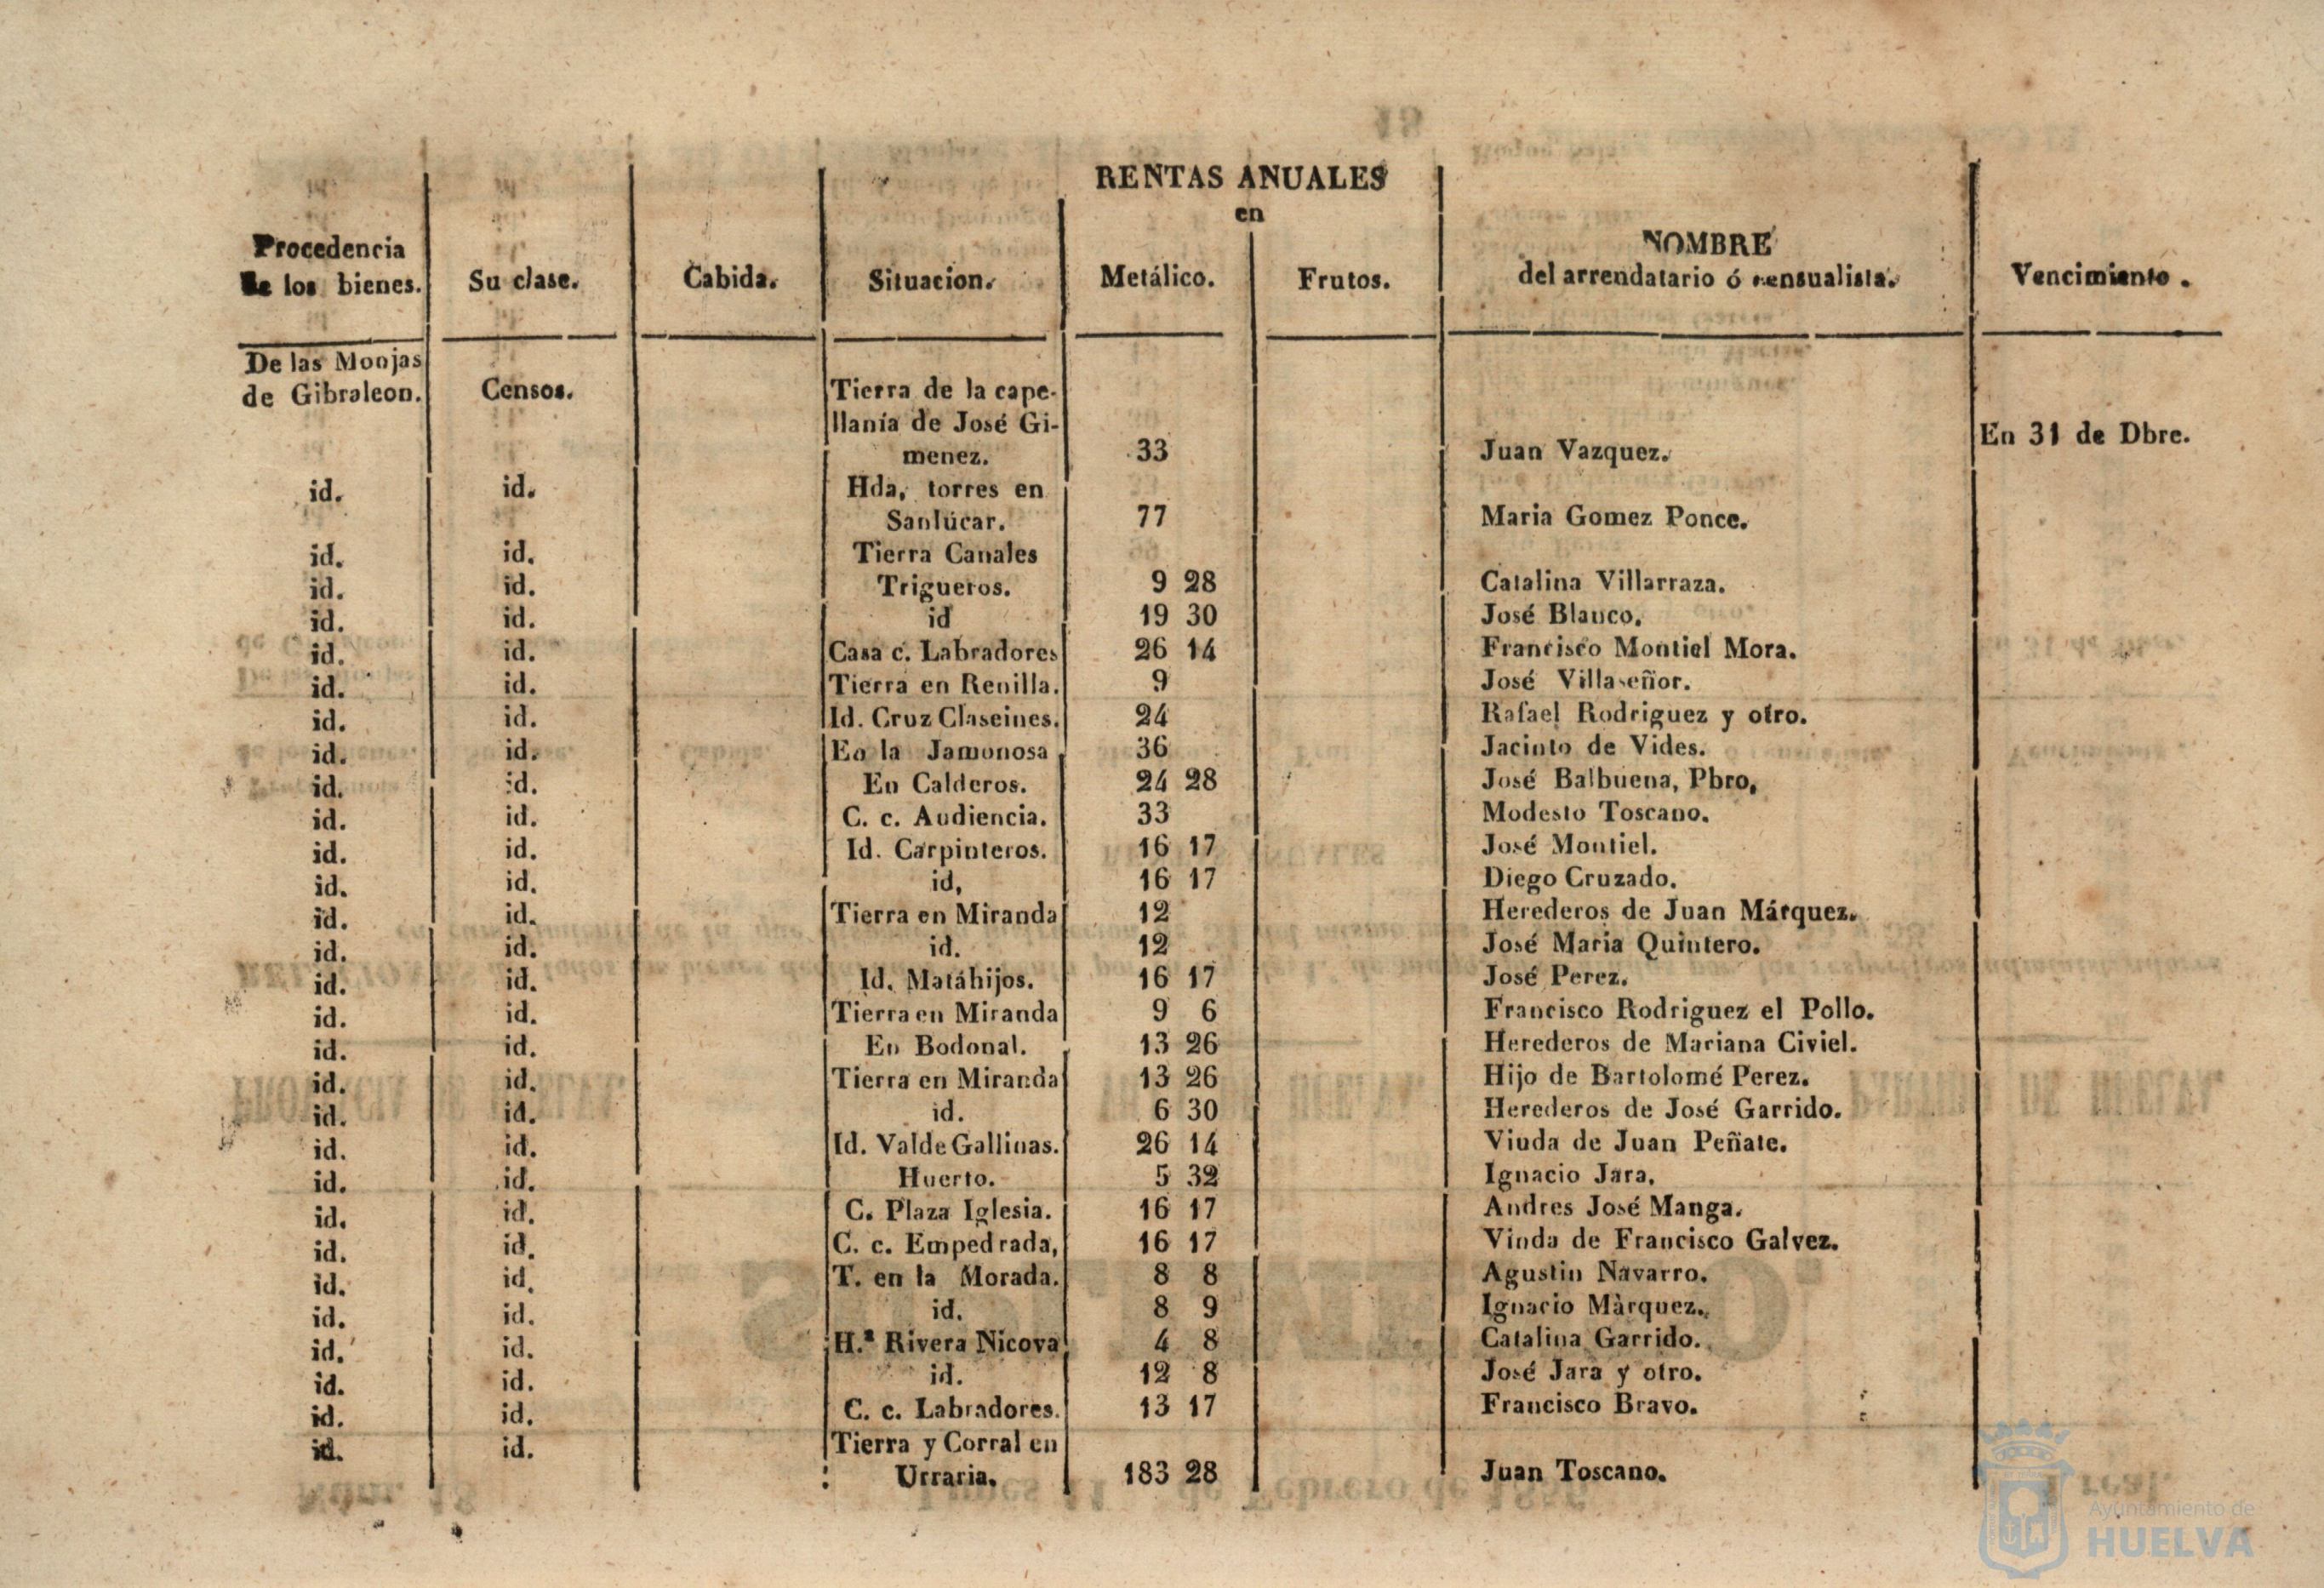 RENTAS ANUALES
en
Procedencia de los bienes. Su clase. Cabida. Situacion. Metálico. Frutos. NOMBRE del arrendatario ó censualista. Vencimiento.
De las Monjas
de Gibraleon. Censos. Tierra de la cape-
llanía de José Gi- En 31 de Dbre.
menez. 33 Juan Vazquez.
id. id. Hda, torres en
Sanlúcar. 77 Maria Gomez Ponce.
id. id. Tierra Canales
id. id. Trigueros. 9 28 Catalina Villarraza.
id. id. id 19 30 José Blanco.
id. id. Casa c. Labradores 26 14 Francisco Montiel Mora.
id. id. Tierra en Renilla. 9 José Villaseñor.
id. id. Id. Cruz Claseines. 24 Rafael Rodriguez y otro.
id. id. En la Jamonosa 36 Jacinto de Vides.
id. id. En Calderos. 24 28 José Balbuena, Pbro,
id. id. C. c. Audiencia. 33 Modesto Toscano.
id. id. Id. Carpinteros. 16 17 José Montiel.
id. id. id, 16 17 Diego Cruzado.
id. id. Tierra en Miranda 12 Herederos de Juan Márquez.
id. id. id. 12 José Maria Quintero.
id. id. Id. Matáhijos. 16 17 José Perez.
id. id. Tierra en Miranda 9 6 Francisco Rodriguez el Pollo.
id. id. En Bodonal. 13 26 Herederos de Mariana Civiel.
id. id. Tierra en Miranda 13 26 Hijo de Bartolomé Perez.
id. id. id. 6 30 Herederos de José Garrido.
id. id. Id. Valde Gallinas. 26 14 Viuda de Juan Peñate.
id. id. Huerto. 5 32 Ignacio Jara.
id. id. C. Plaza Iglesia. 16 17 Andres José Manga.
id. id. C. c. Empedrada, 16 17 Vinda de Francisco Galvez.
id. id. T. en la Morada. 8 8 Agustin Navarro.
id. id. id. 8 9 Ignacio Màrquez.
id. id. H.ª Rivera Nicova 4 8 Catalina Garrido.
id. id. id. 12 8 José Jara y otro.
id. id. C. c. Labradores. 13 17 Francisco Bravo.
id. id. Tierra y Corral en
Urraria. 183 28 Juan Toscano.
Ayuntamiento de
HUELVA